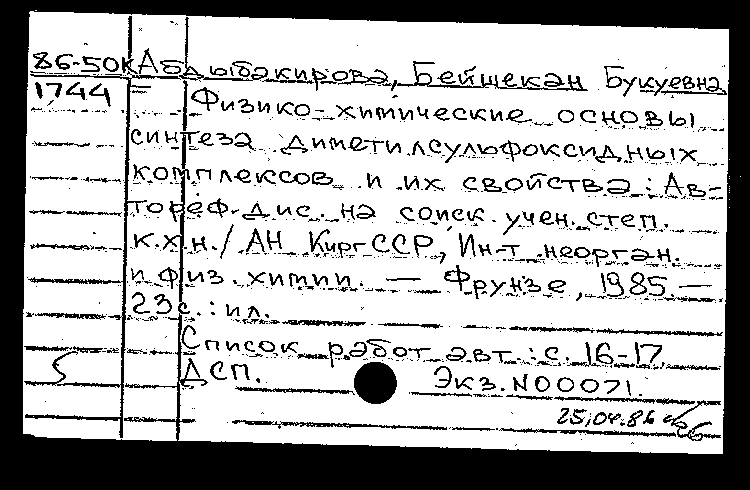 86-50к Абдыбакирова, Бейшекан Букуевна
1744 = Физико-химические основы
синтеза диметилсульфоксидных
комплексов и их свойства: Ав-
тореф. дис. на соиск. учен. степ.
к.х.н. / АН КиргССР, Ин-т неорган.
и физ. химии. — Фрунзе, 1985. —
23с.: ил.
Список работ авт.: с. 16-17
ДСП. Экз. N00071.
25.04.86